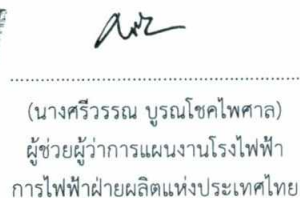 (นางศรีวรรณ บูรณโชคไพศาล)
ผู้ช่วยผู้ว่าการแผนงานโรงไฟฟ้า
การไฟฟ้าฝ่ายผลิตแห่งประเทศไทย